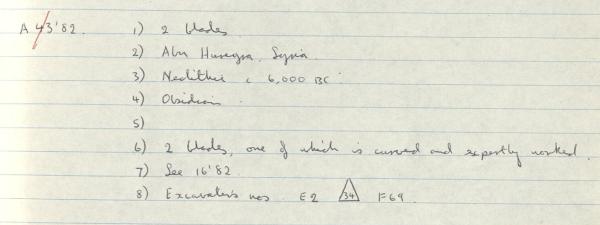 A 43'82. 1) 2 blades
2) Abu Hureyra, Syria.
3) Neolithic c 6,000 BC.
4) Obsidian.
5)
6) 2 blades, one of which is curved and expertly worked.
7) See 16'82.
8) Excavaters nos E2 34 F69.